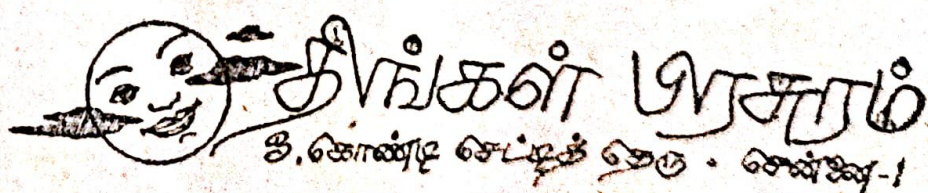 திங்கள் பிரசுரம்
3, கோண்டி செட்டித் தெரு . சென்னை-1